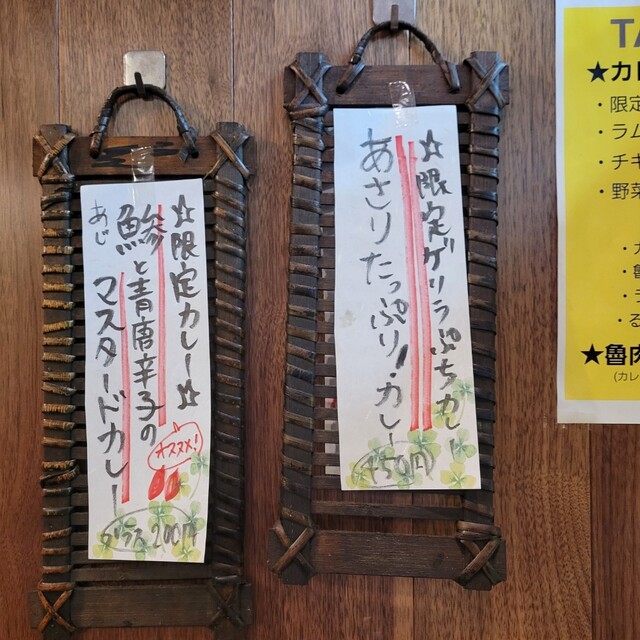 ☆限定カレー☆
鯵と青唐辛子の
あじ
マスタードカレー
オススメ!
☆限定ゲリラぷちカレー
あさりたっぷり!カレー
450円
TA
★カ
・限定
・ラム
・チキ
・野菜
★魯肉
(カレ